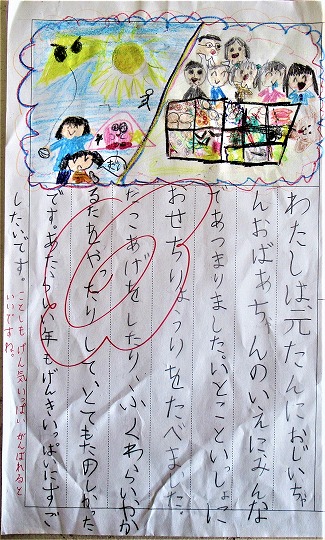 わたしは元たんにおじいちゃ
んおばあちゃんのいえにみんな
であつまりました。いとこといっしょに
おせちりょうりをたべました。
たこあげをしたり、ふくわらいやか
るたをやったりしてとてもたのしかった
です。あたらしい年もげんきいっぱいにすご
したいです。
ことしも げん気いっぱい がんばれると
いいですね。